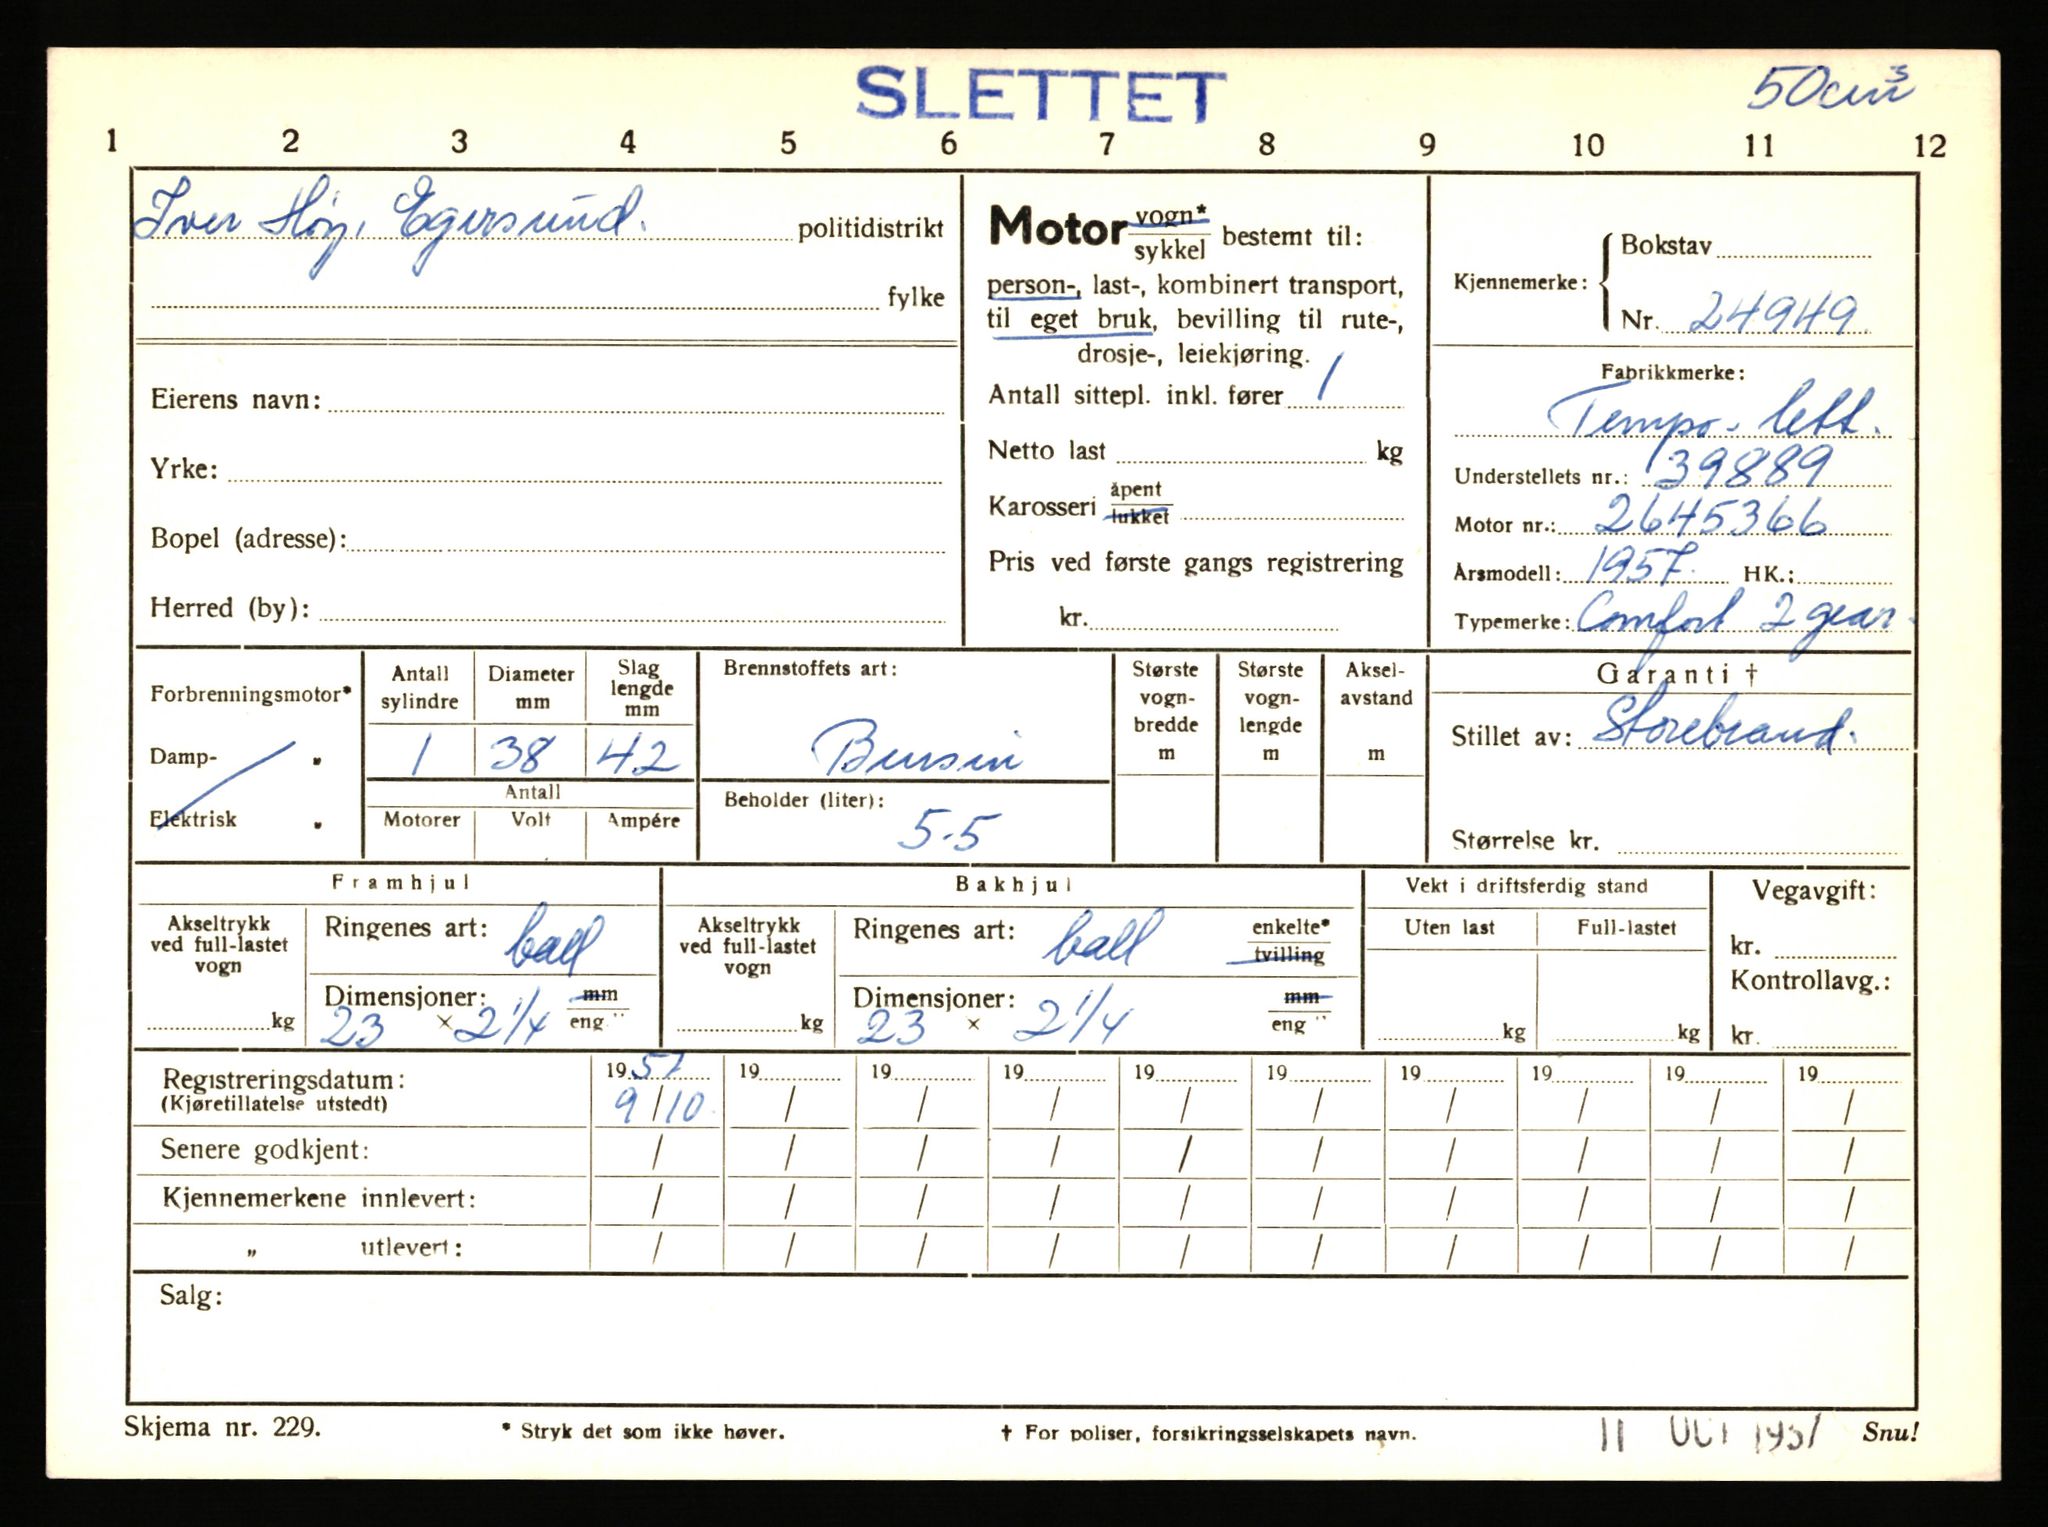 SLETTET
50cm³
1 2 3 4 5 6 7 8 9 10 11 12
Iver Höy, Egersund. politidistrikt
fylke
Eierens navn:
Yrke:
Bopel (adresse):
Herred (by):
Motor vogn* / sykkel bestemt til:
person-, last-, kombinert transport,
til eget bruk, bevilling til rute-,
drosje-, leiekjøring.
Antall sittepl. inkl. fører 1
Netto last kg
Karosseri åpent / lukket
Pris ved første gangs registrering
kr.
Kjennemerke: { Bokstav
Nr. 24949
Fabrikkmerke:
Tempo - lett.
Understellets nr.: 139889
Motor nr.: 2645366
Årsmodell: 1957. HK.:
Typemerke: Comfort 2 gear.
Forbrenningsmotor*
Damp- "
Elektrisk "
Antall sylindre
Diameter mm
Slag lengde mm
1 38 42
Antall
Motorer Volt Ampére
Brennstoffets art:
Bensin
Beholder (liter):
5.5
Største vogn-bredde m
Største vogn-lengde m
Aksel-avstand m
Garanti †
Stillet av: Storebrand.
Størrelse kr.
Framhjul
Akseltrykk ved full-lastet vogn
kg
Ringenes art: ball
Dimensjoner: mm / eng "
23 × 2 1/4
Bakhjul
Akseltrykk ved full-lastet vogn
kg
Ringenes art: ball enkelte* / tvilling
Dimensjoner: mm / eng "
23 × 2 1/4
Vekt i driftsferdig stand
Uten last Full-lastet
kg kg
Vegavgift:
kr.
Kontrollavg.:
kr.
Registreringsdatum: 1957 19 19 19 19 19 19 19 19 19
(Kjøretillatelse utstedt) 9/10 / / / / / / / / /
Senere godkjent: / / / / / / / / / /
Kjennemerkene innlevert: / / / / / / / / / /
" utlevert: / / / / / / / / / /
Salg:
Skjema nr. 229. * Stryk det som ikke høver. † For poliser, forsikringsselskapets navn. 11 OKT 1957 Snu!